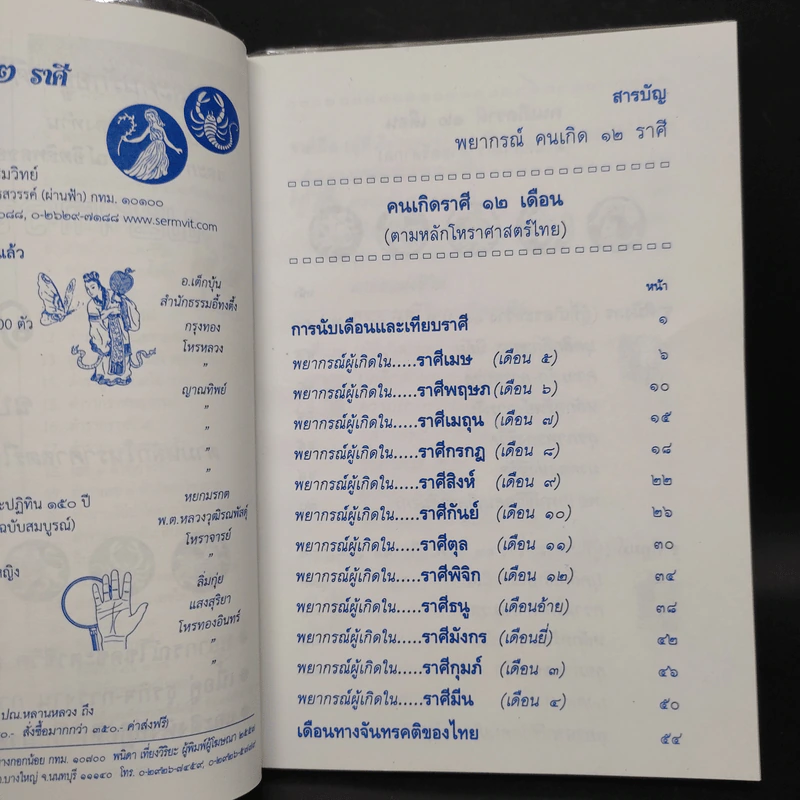 ๒ ราศี
มวิทย์
รสวรรค์ (ผ่านฟ้า) กทม. ๑๐๑๐๐
๐๘๘, ๐-๒๖๒๙-๗๑๘๘ www.sermvit.com
แล้ว
อ.เต็กบุ้น
สำนักธรรมอี้ทงตึ้ง
00 ตัว
กรุงทอง
โหรหลวง
"
ญาณทิพย์
"
"
"
"
หยกมรกต
ะปฏิทิน ๑๕๐ ปี
พ.ต.หลวงวุฒิรณพัสดุ์
ฉบับสมบูรณ์)
โหราจารย์
"
หญิง
ลิ่มกุ่ย
แสงสุริยา
โหรทองอินทร์
"
"
ปณ.หลานหลวง ถึง
๐.- สั่งซื้อมากกว่า ๓๕๐.- ค่าส่งฟรี)
างกอกน้อย กทม. ๑๐๗๐๐ พนิดา เที่ยงวิริยะ ผู้พิมพ์ผู้โฆษณา
อ.บางใหญ่ จ.นนทบุรี ๑๑๑๔๐ โทร.
สารบัญ
พยากรณ์ คนเกิด ๑๒ ราศี
คนเกิดราศี ๑๒ เดือน
(ตามหลักโหราศาสตร์ไทย)
หน้า
การนับเดือนและเทียบราศี ๑
พยากรณ์ผู้เกิดใน.....ราศีเมษ (เดือน ๕) ๖
พยากรณ์ผู้เกิดใน.....ราศีพฤษภ (เดือน ๖) ๑๐
พยากรณ์ผู้เกิดใน.....ราศีเมถุน (เดือน ๗) ๑๕
พยากรณ์ผู้เกิดใน.....ราศีกรกฎ (เดือน ๘) ๑๘
พยากรณ์ผู้เกิดใน.....ราศีสิงห์ (เดือน ๙) ๒๒
พยากรณ์ผู้เกิดใน.....ราศีกันย์ (เดือน ๑๐) ๒๖
พยากรณ์ผู้เกิดใน.....ราศีตุล (เดือน ๑๑) ๓๐
พยากรณ์ผู้เกิดใน.....ราศีพิจิก (เดือน ๑๒) ๓๔
พยากรณ์ผู้เกิดใน.....ราศีธนู (เดือนอ้าย) ๓๘
พยากรณ์ผู้เกิดใน.....ราศีมังกร (เดือนยี่) ๔๒
พยากรณ์ผู้เกิดใน.....ราศีกุมภ์ (เดือน ๓) ๔๖
พยากรณ์ผู้เกิดใน.....ราศีมีน (เดือน ๔) ๕๐
เดือนทางจันทรคติของไทย ๕๔